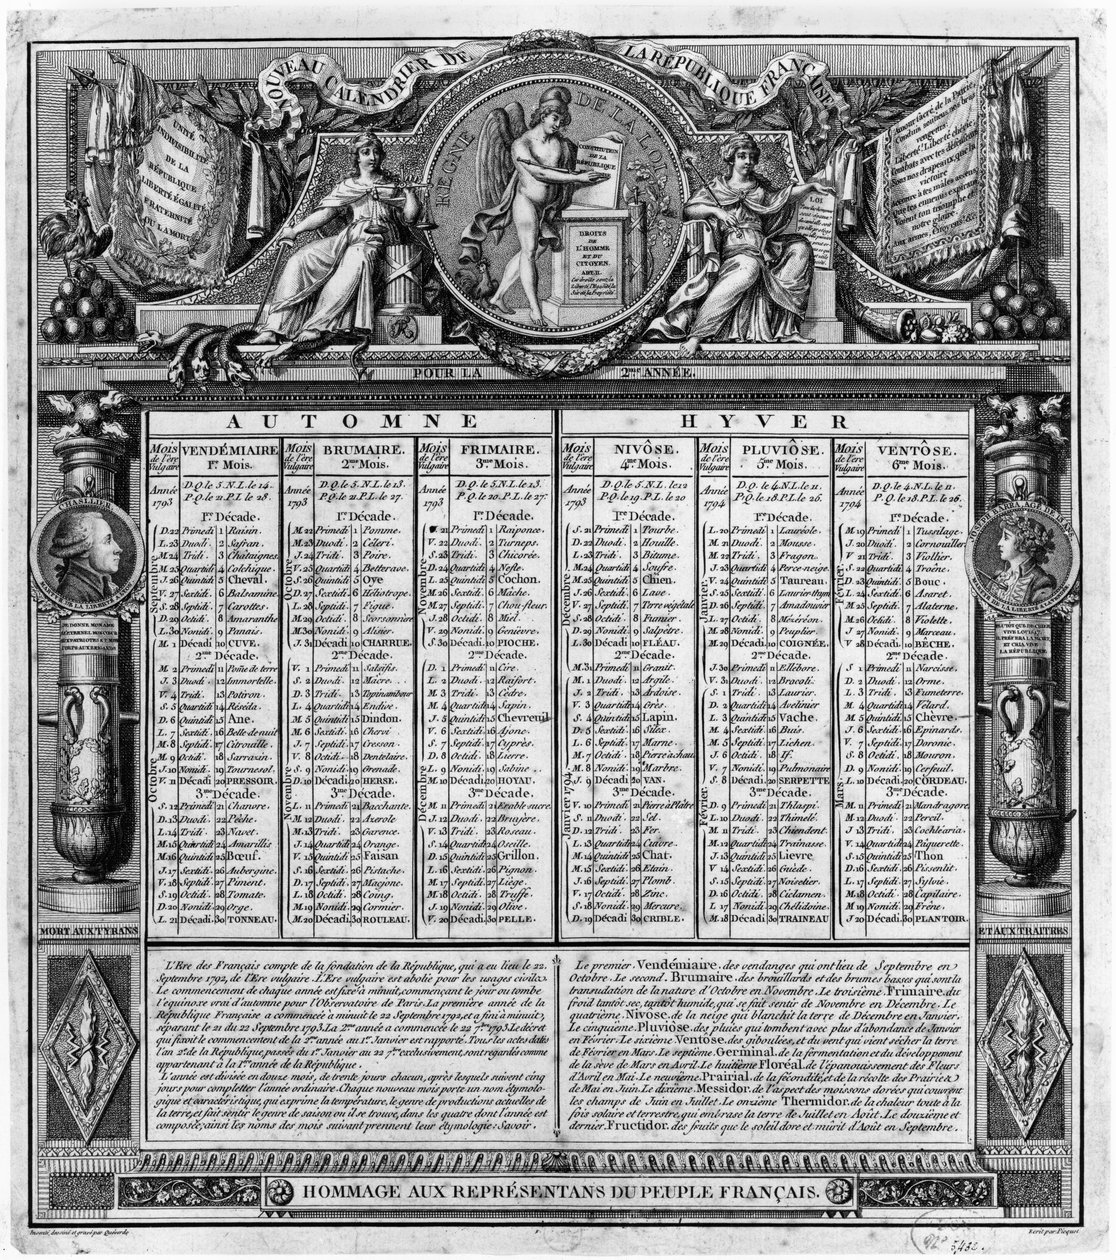 NOUVEAU CALENDRIER DE LA RÉPUBLIQUE FRANÇAISE
UNITÉ
INDIVISIBILITÉ
DE LA
RÉPUBLIQUE
LIBERTÉ EGALITÉ
FRATERNITÉ
OU LA MORT
REGNE DE LA LOI
CONSTITUTION
DE LA
RÉPUBLIQUE
DROITS
DE
L'HOMME
ET DU
CITOYEN.
ART. II.
LOI
Amour sacré de la Patrie,
Conduis, soutiens nos bras
vengeurs
Liberté! Liberté chérie,
Combats avec tes défenseurs
Sous nos drapeaux, que la
victoire
accoure à tes mâles accens,
Que tes ennemis expirans
voient ton triomphe et
notre gloire.
Aux armes, Citoyens
POUR LA 2me ANNÉE.
AUTOMNE
HYVER
Mois de l'ère Vulgaire
VENDÉMIAIRE
1er Mois.
Année 1793
D.Q. le 5. N.L. le 14.
P.Q. le 21. P.L. le 28.
1re Décade.
Septembre
D. 22 Primedi 1 Raisin.
L. 23 Duodi 2 Safran.
M. 24 Tridi 3 Châtaignes
M. 25 Quartidi 4 Colchique
J. 26 Quintidi 5 Cheval.
V. 27 Sextidi 6 Balsamine
S. 28 Septidi 7 Carottes.
D. 29 Octidi 8 Amaranthe
L. 30 Nonidi 9 Panais.
M. 1 Décadi 10 CUVE.
2me Décade.
Octobre
M. 2 Primedi 11 Pome de terre
J. 3 Duodi 12 Immortelle.
V. 4 Tridi 13 Potiron
S. 5 Quartidi 14 Réséda.
D. 6 Quintidi 15 Ane.
L. 7 Sextidi 16 Belle-de-nuit
M. 8 Septidi 17 Citrouille.
M. 9 Octidi 18 Sarrazin.
J. 10 Nonidi 19 Tournesol.
V. 11 Décadi 20 PRESSOIR.
3me Décade.
S. 12 Primedi 21 Chanvre.
D. 13 Duodi 22 Pêche.
L. 14 Tridi 23 Navet.
M. 15 Quartidi 24 Amarillis
M. 16 Quintidi 25 Bœuf.
J. 17 Sextidi 26 Aubergine.
V. 18 Septidi 27 Piment.
S. 19 Octidi 28 Tomate.
D. 20 Nonidi 29 Orge.
L. 21 Décadi 30 TONNEAU.
Mois de l'ère Vulgaire
BRUMAIRE.
2me Mois.
Année 1793
D.Q. le 5. N.L. le 13.
P.Q. le 21. P.L. le 27.
1re Décade.
Octobre
M. 22 Primedi 1 Pomme.
M. 23 Duodi 2 Céleri.
J. 24 Tridi 3 Poire.
V. 25 Quartidi 4 Betterave.
S. 26 Quintidi 5 Oye
D. 27 Sextidi 6 Héliotrope.
L. 28 Septidi 7 Figue
M. 29 Octidi 8 Scorsonnère
M. 30 Nonidi 9 Alisier
J. 31 Décadi 10 CHARRUE.
2me Décade.
Novembre
V. 1 Primedi 11 Salsifis.
S. 2 Duodi 12 Macre.
D. 3 Tridi 13 Topinambour
L. 4 Quartidi 14 Endive.
M. 5 Quintidi 15 Dindon.
M. 6 Sextidi 16 Chervi
J. 7 Septidi 17 Cresson.
V. 8 Octidi 18 Dentelaire.
S. 9 Nonidi 19 Grenade.
D. 10 Décadi 20 HERSE.
3me Décade.
L. 11 Primedi 21 Bacchante.
M. 12 Duodi 22 Azerole
M. 13 Tridi 23 Garence.
J. 14 Quartidi 24 Orange.
V. 15 Quintidi 25 Faisan
S. 16 Sextidi 26 Pistache.
D. 17 Septidi 27 Macjonc.
L. 18 Octidi 28 Coing.
M. 19 Nonidi 29 Cormier.
M. 20 Décadi 30 ROULEAU.
Mois de l'ère Vulgaire
FRIMAIRE.
3me Mois.
Année 1793
D.Q. le 5. N.L. le 13.
P.Q. le 20. P.L. le 27.
1re Décade.
Novembre
J. 21 Primedi 1 Raiponce.
V. 22 Duodi 2 Turneps.
S. 23 Tridi 3 Chicorée.
D. 24 Quartidi 4 Nefle.
L. 25 Quintidi 5 Cochon.
M. 26 Sextidi 6 Mâche.
M. 27 Septidi 7 Chou-fleur.
J. 28 Octidi 8 Miel.
V. 29 Nonidi 9 Genièvre.
S. 30 Décadi 10 PIOCHE.
2me Décade.
Décembre
D. 1 Primedi 11 Cire.
L. 2 Duodi 12 Raifort.
M. 3 Tridi 13 Cèdre.
M. 4 Quartidi 14 Sapin.
J. 5 Quintidi 15 Chevreuil
V. 6 Sextidi 16 Ajonc.
S. 7 Septidi 17 Cyprès.
D. 8 Octidi 18 Lierre.
L. 9 Nonidi 19 Sabine.
M. 10 Décadi 20 HOYAU.
3me Décade.
M. 11 Primedi 21 Erable-sucre.
J. 12 Duodi 22 Bruyère.
V. 13 Tridi 23 Roseau.
S. 14 Quartidi 24 Oseille.
D. 15 Quintidi 25 Grillon.
L. 16 Sextidi 26 Pignon.
M. 17 Septidi 27 Liège.
M. 18 Octidi 28 Truffe.
J. 19 Nonidi 29 Olive.
V. 20 Décadi 30 PELLE.
Mois de l'ère Vulgaire
NIVÔSE.
4me Mois.
Année 1793
D.Q. le 5. N.L. le 12
P.Q. le 19. P.L. le 20
1re Décade.
Décembre
S. 21 Primedi 1 Tourbe.
D. 22 Duodi 2 Houille.
L. 23 Tridi 3 Bitume.
M. 24 Quartidi 4 Soufre.
M. 25 Quintidi 5 Chien.
J. 26 Sextidi 6 Lave.
V. 27 Septidi 7 Terre végétale
S. 28 Octidi 8 Fumier.
D. 29 Nonidi 9 Salpêtre.
L. 30 Décadi 10 FLÉAU.
2me Décade.
M. 31 Primedi 11 Granit.
Janvier 1794
M. 1 Duodi 12 Argile.
J. 2 Tridi 13 Ardoise.
V. 3 Quartidi 14 Grès.
S. 4 Quintidi 15 Lapin.
D. 5 Sextidi 16 Silex.
L. 6 Septidi 17 Marne.
M. 7 Octidi 18 Pierre à chau
M. 8 Nonidi 19 Marbre.
J. 9 Décadi 20 VAN.
3me Décade.
V. 10 Primedi 21 Pierre à Plâtre
S. 11 Duodi 22 Sel.
D. 12 Tridi 23 Fer.
L. 13 Quartidi 24 Cuivre.
M. 14 Quintidi 25 Chat.
M. 15 Sextidi 26 Etain.
J. 16 Septidi 27 Plomb.
V. 17 Octidi 28 Zinc.
S. 18 Nonidi 29 Mercure.
D. 19 Décadi 30 CRIBLE.
Mois de l'ère Vulgaire
PLUVIÔSE.
5me Mois.
Année 1794
D.Q. le 4. N.L. le 11.
P.Q. le 18. P.L. le 26.
1re Décade.
Janvier.
L. 20 Primedi 1 Lauréole.
M. 21 Duodi 2 Mousse.
M. 22 Tridi 3 Fragon.
J. 23 Quartidi 4 Perce-neige.
V. 24 Quintidi 5 Taureau.
S. 25 Sextidi 6 Laurier-thym
D. 26 Septidi 7 Amadouvier
L. 27 Octidi 8 Mézéréon.
M. 28 Nonidi 9 Peuplier
M. 29 Décadi 10 COIGNÉE.
2me Décade.
J. 30 Primedi 11 Ellébore.
V. 31 Duodi 12 Brocoli.
Février.
S. 1 Tridi 13 Laurier.
D. 2 Quartidi 14 Avelinier
L. 3 Quintidi 15 Vache.
M. 4 Sextidi 16 Buis.
M. 5 Septidi 17 Lichen.
J. 6 Octidi 18 If.
V. 7 Nonidi 19 Pulmonaire
S. 8 Décadi 20 SERPETTE
3me Décade.
D. 9 Primedi 21 Thlaspi.
L. 10 Duodi 22 Thimelé.
M. 11 Tridi 23 Chiendent.
M. 12 Quartidi 24 Traînasse
J. 13 Quintidi 25 Lievre
V. 14 Sextidi 26 Guède.
S. 15 Septidi 27 Noisetier
D. 16 Octidi 28 Ciclamen.
L. 17 Nonidi 29 Chélidoine.
M. 18 Décadi 30 TRAINEAU
Mois de l'ère Vulgaire
VENTÔSE.
6me Mois.
Année 1794
D.Q. le 4. N.L. le 11.
P.Q. le 18. P.L. le 26.
1re Décade.
Février.
M. 19 Primedi 1 Tussilage.
J. 20 Duodi 2 Cornouiller
V. 21 Tridi 3 Viollier.
S. 22 Quartidi 4 Troêne.
D. 23 Quintidi 5 Bouc.
L. 24 Sextidi 6 Asaret.
M. 25 Septidi 7 Alaterne.
M. 26 Octidi 8 Violette.
J. 27 Nonidi 9 Marceau.
V. 28 Décadi 10 BÊCHE.
2me Décade.
Mars.
S. 1 Primedi 11 Narcisse.
D. 2 Duodi 12 Orme.
L. 3 Tridi 13 Fumeterre.
M. 4 Quartidi 14 Vélard.
M. 5 Quintidi 15 Chèvre.
J. 6 Sextidi 16 Epinards.
V. 7 Septidi 17 Doronic.
S. 8 Octidi 18 Mouron.
D. 9 Nonidi 19 Cerfeuil.
L. 10 Décadi 20 CORDEAU.
3me Décade.
M. 11 Primedi 21 Mandragore
M. 12 Duodi 22 Percil.
J. 13 Tridi 23 Cochléaria.
V. 14 Quartidi 24 Pâquerette.
S. 15 Quintidi 25 Thon
D. 16 Sextidi 26 Pissenlit
L. 17 Septidi 27 Sylvie.
M. 18 Octidi 28 Capilaire.
M. 19 Nonidi 29 Frêne.
J. 20 Décadi 30 PLANTOIR.
CHASLLIER
JE DONNE MON AME
PLUTÔT QUE DE CRIER
VIVE LOUIS
ET CRIA VIVE
LA RÉPUBLIQUE.
MORT AUX TYRANS
ET AUX TRAITRES
L'Ere des Français compte de la fondation de la République, qui a eu lieu le 22.
Septembre 1792, de l'Ere vulgaire. L'Ere vulgaire est abolie pour les usages civils.
Le commencement de chaque année est fixé à minuit, commençant le jour ou tombe
l'equinoxe vrai d'automne pour l'Observatoire de Paris. La première année de la
République Française a commencée à minuit le 22 Septembre 1792, et a fini à minuit,
séparant le 21 du 22 Septembre 1793. La 2me année a commencée le 22 7bre 1793. Le décret
qui fixoit le commencement de la 2me année au 1er Janvier est rapporté. Tous les actes datés
l'an 2d de la République, passés du 1er Janvier au 22 7bre exclusivement, sont regardés comme
appartenant à la 1re année de la République.
L'année est divisée en douze mois, de trente jours chacun, après lesquels suivent cinq
jours pour completter l'année ordinaire. Chaque nouveau mois porte un nom étymolo-
gique et caractéristique, qui exprime la température, le genre de productions actuelles de
la terre, et fait sentir le genre de saison ou il se trouve, dans les quatre dont l'année est
composée; ainsi les noms des mois suivant prennent leur étymologie: Savoir.
Le premier, Vendémiaire, des vendanges qui ont lieu de Septembre en
Octobre. Le second, Brumaire, des brouillards et des brumes basses qui sont la
transudation de la nature d'Octobre en Novembre. Le troisième, Frimaire, du
froid tantôt sec, tantôt humide, qui se fait sentir de Novembre en Décembre. Le
quatrième, Nivôse, de la neige qui blanchit la terre de Décembre en Janvier.
Le cinquième, Pluviôse, des pluies qui tombent avec plus d'abondance de Janvier
en Février. Le sixième, Ventôse, des giboulées, et du vent qui vient sécher la terre
de Février en Mars. Le septième, Germinal, de la fermentation et du développement
de la sève de Mars en Avril. Le huitième, Floréal, de l'épanouissement des Fleurs
d'Avril en Mai. Le neuvième, Prairial, de la fécondité, et de la récolte des Prairies
de Mai en Juin. Le dixième, Messidor, de l'aspect des moissons dorées qui couvrent
les champs de Juin en Juillet. Le onzième, Thermidor, de la chaleur toute à la
fois solaire et terrestre, qui embrase la terre de Juillet en Août. Le douzième et
dernier, Fructidor, des fruits que le soleil dore et mûrit d'Août en Septembre.
HOMMAGE AUX REPRÉSENTANS DU PEUPLE FRANÇAIS.
Inventé, dessiné et gravé par Quéverdo
Ecrit par Picquet
5,432.